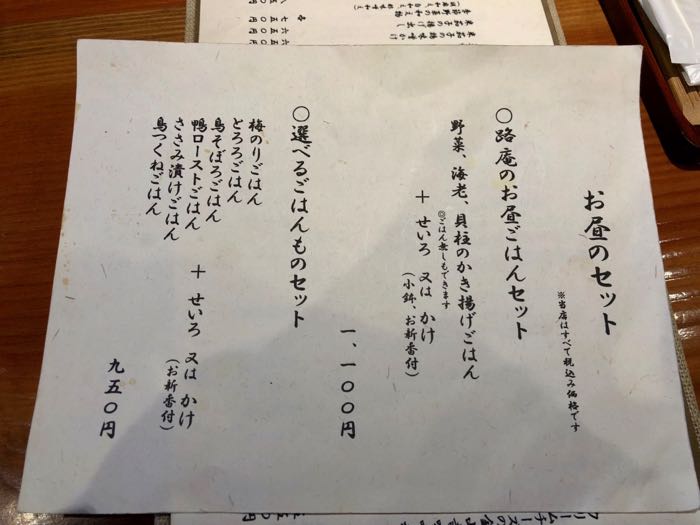 お昼のセット
※当店はすべて税込み価格です
○路庵のお昼ごはんセット
野菜、海老、貝柱のかき揚げごはん
◎ごはん無しもできます
+ せいろ 又は かけ
(小鉢、お新香付)
一、一〇〇円
○選べるごはんものセット
梅のりごはん
とろろごはん
鳥そぼろごはん
鴨ローストごはん
ささみ漬けごはん
鳥つくねごはん
+ せいろ 又は かけ
(お新香付)
九五〇円